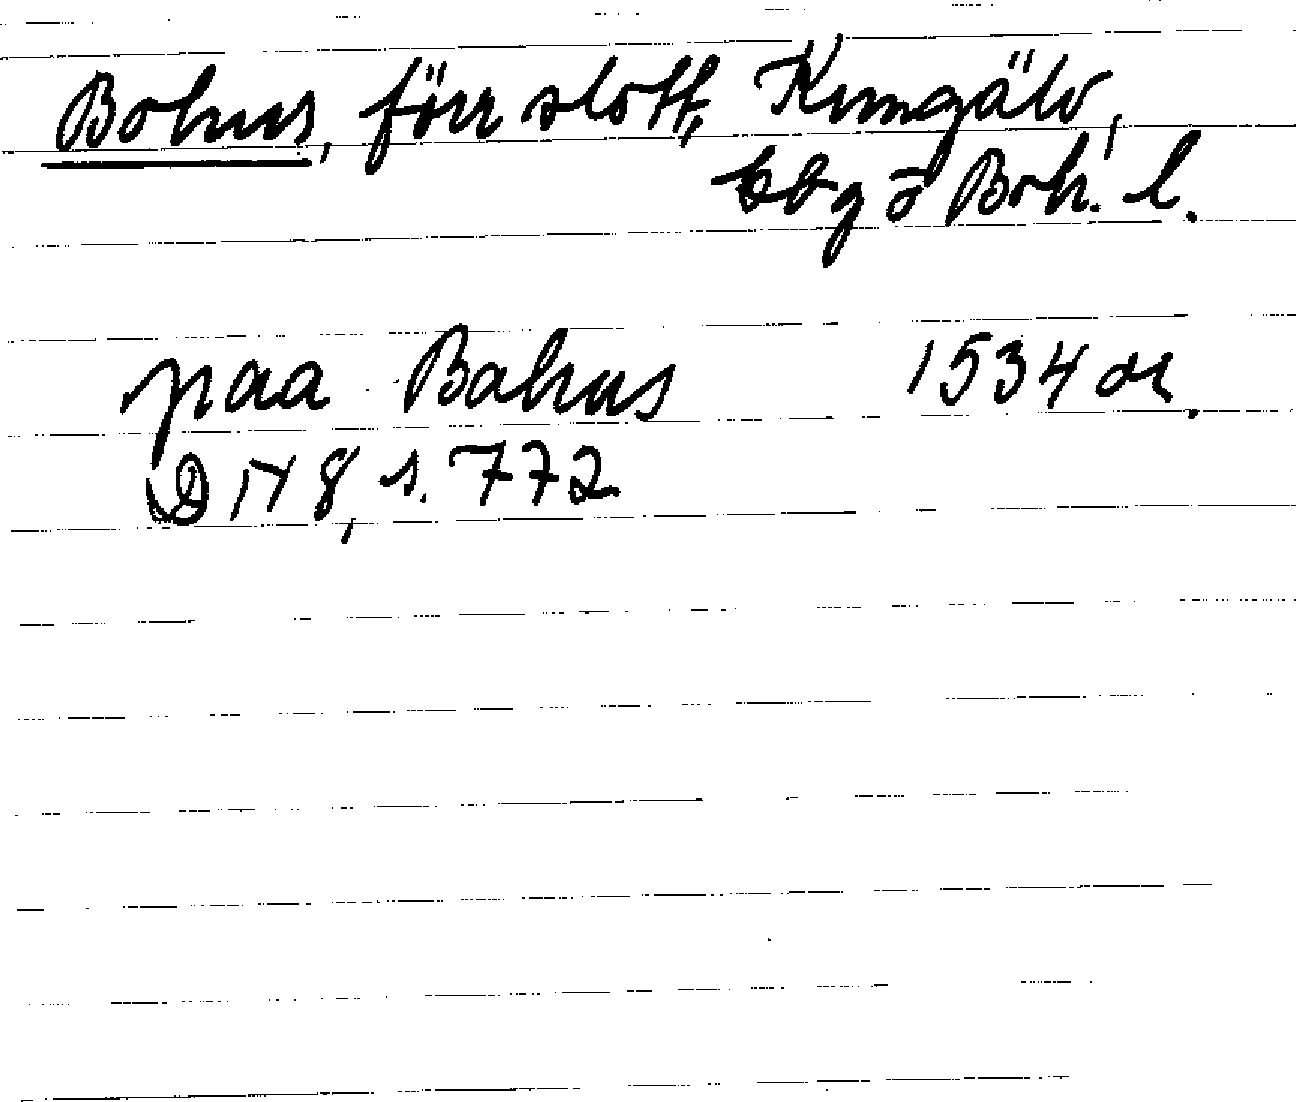 Bohus, förr slott, Kungälv,
Gbg o Boh. l.
paa Bahus 1534 or.
DN 8, s. 772